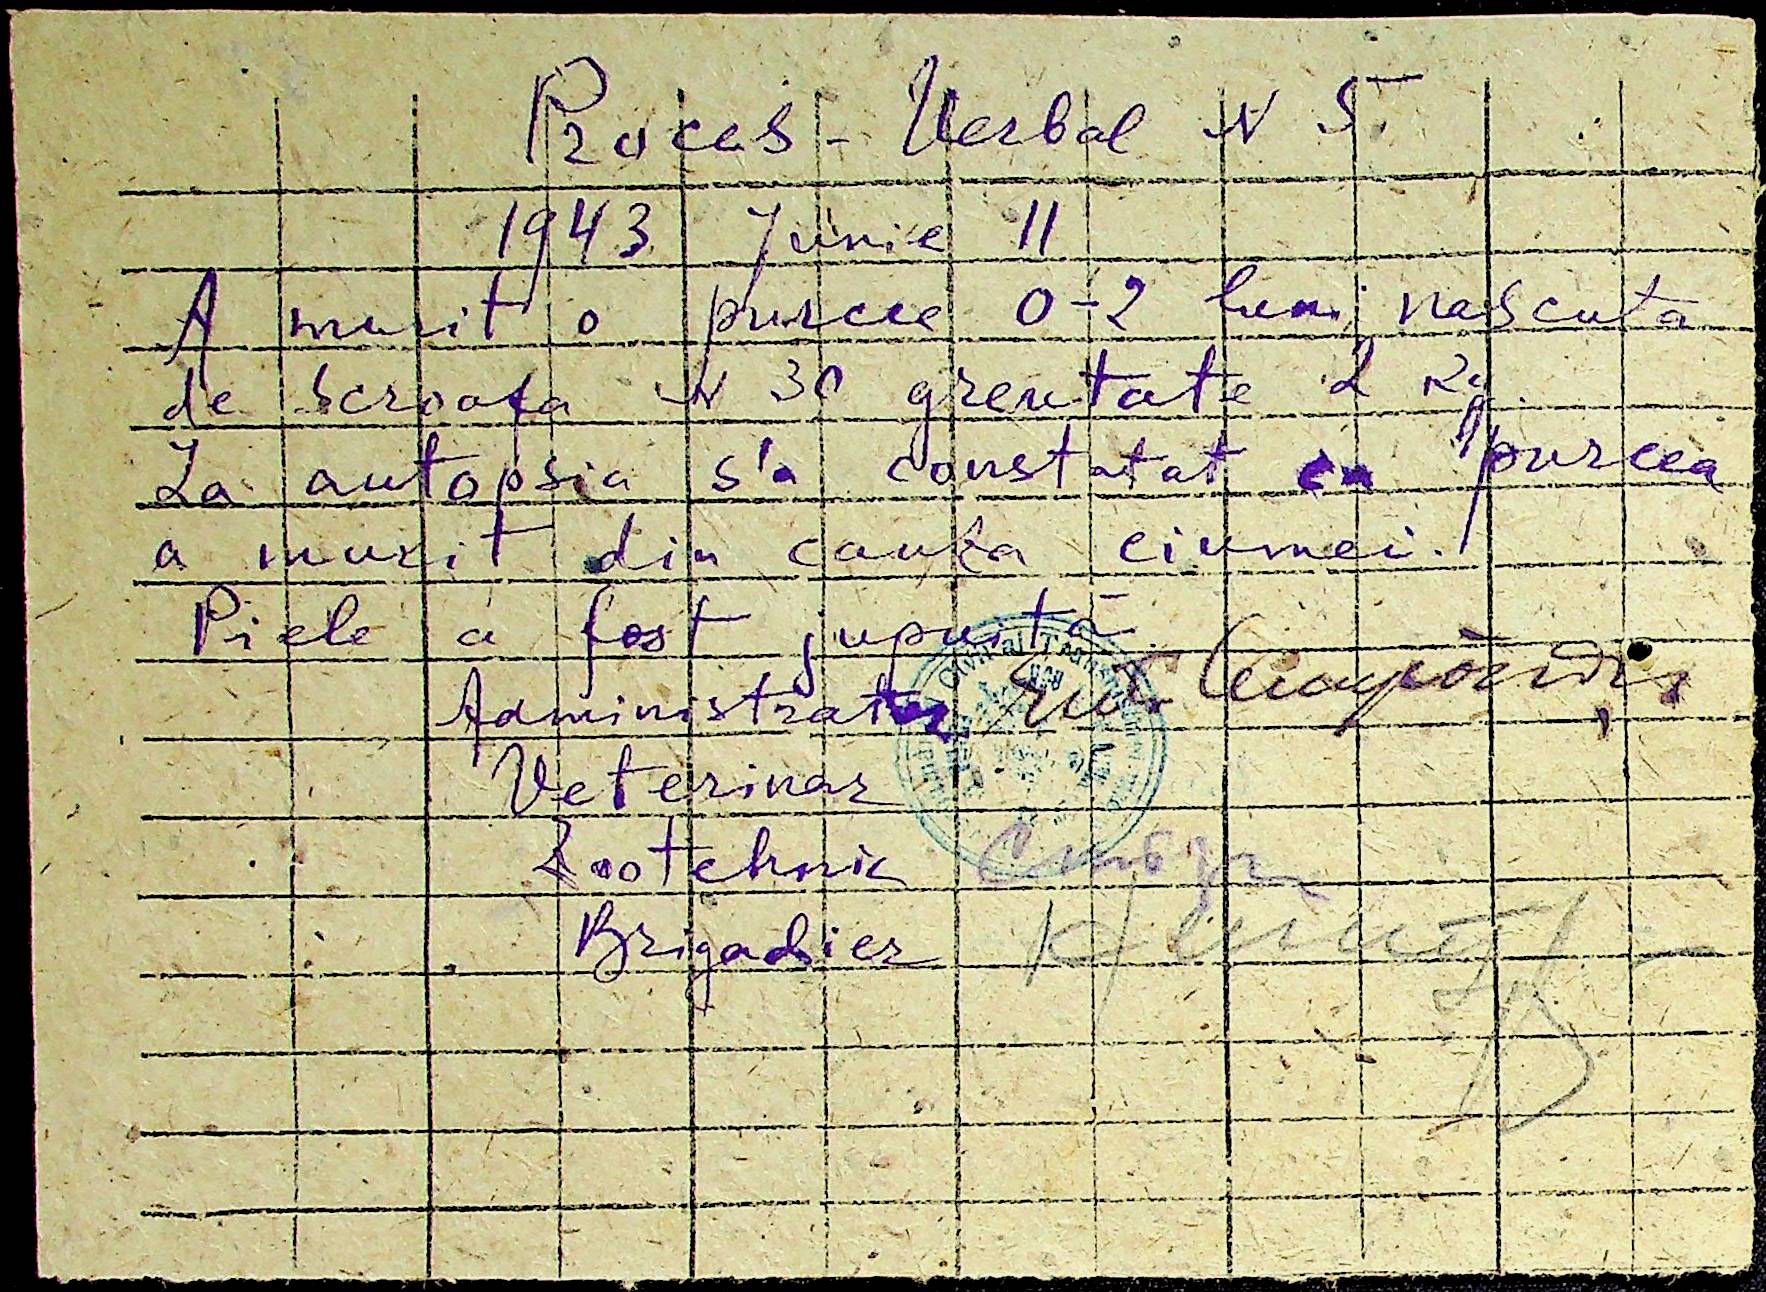 Proces - Verbal N 5.
1943 Junie 11
A murit o purcee 0-2 luni nascuta
de scroafa N 30 greutate 2 Kg.
La autopsia s'a constatat ca purcea
a murit din cauza ciumei.
Piele a fost jupuită
Administrator
Veterinar
Zootehnic
Brigadier